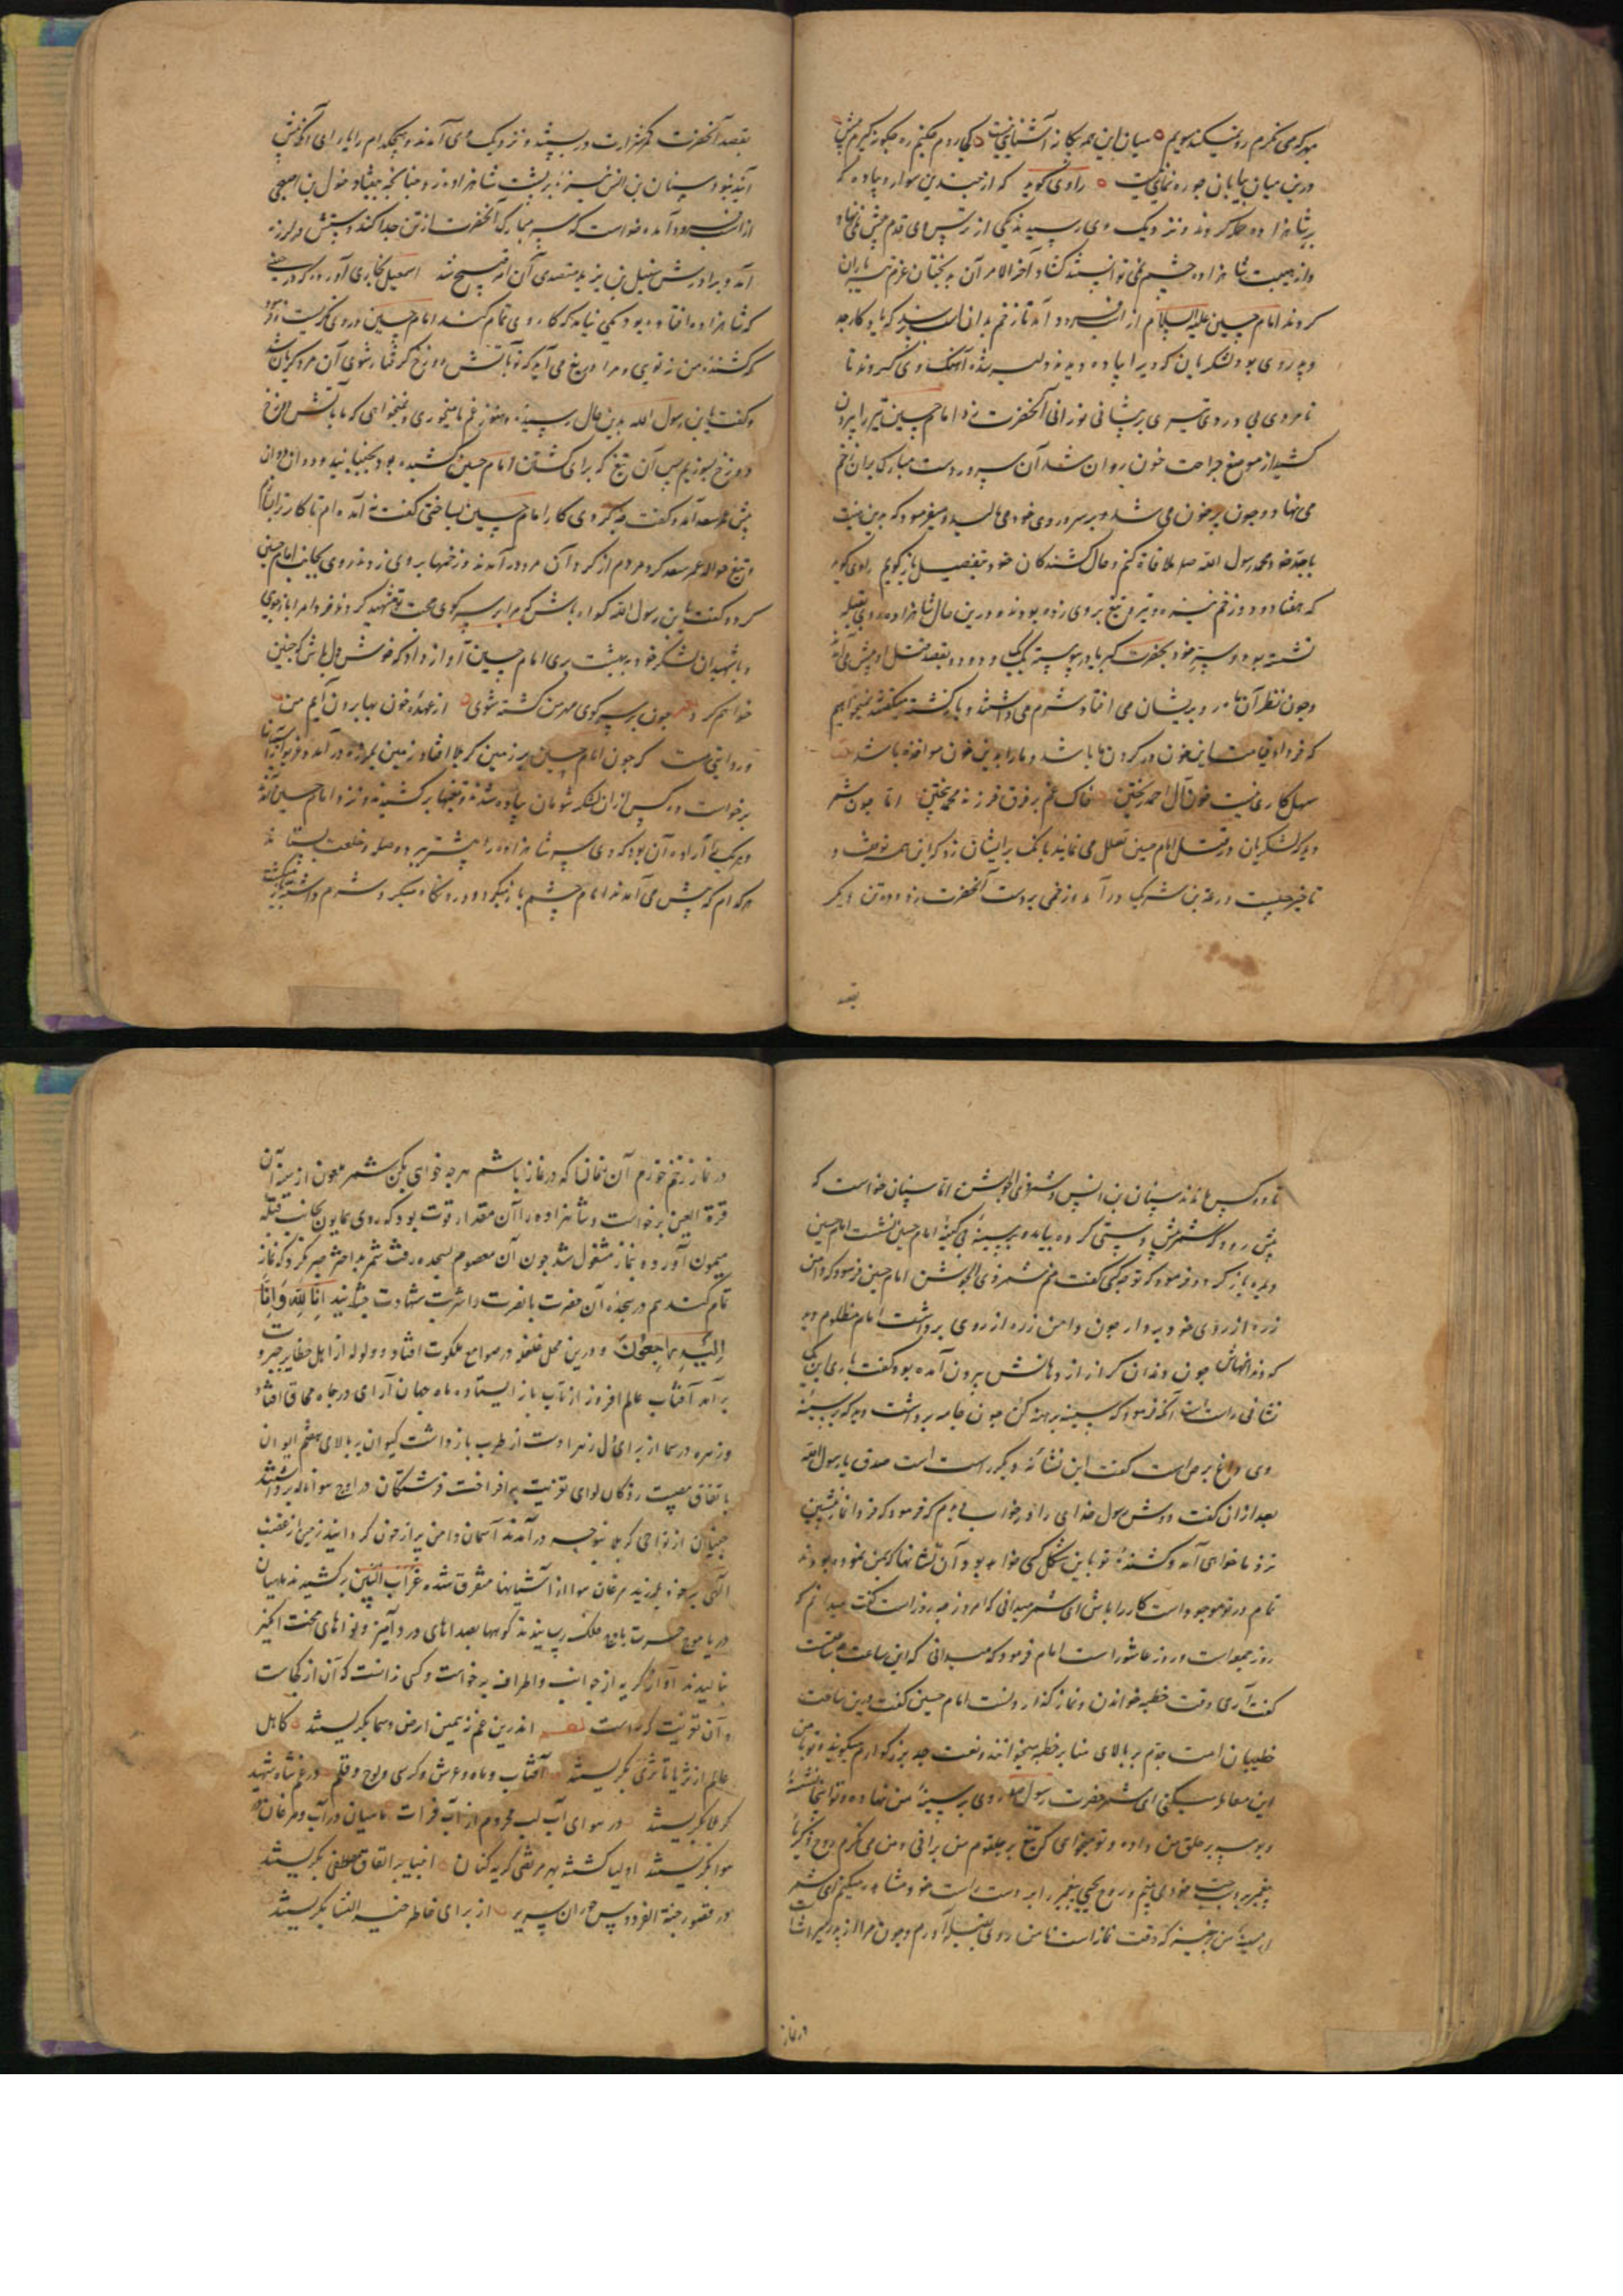 میان این همه بیکانه آشنایی نیست
درین میان بیابان چو ره نمایی نیست راوی کوید که از چندین سوار و پیاده که
بر شاهزاده حمله کردند و نزدیک وی رسیدند یکی از ترس وی قدم پیش نمی نهاد
و از هیبت شاهزاده چشم نمی توانستند کشاد آخر الامر آن بدبختان عزم تیر باران
کردند امام حسین علیه السلام از اسب فرود آمد تا زخم بدان اسب نرسد که یادکار جد
و پدر وی بود لشکریان که ویرا پیاده دیدند دلیر شده آهنک وی کردند تا
نامردی بی دردی تیری بر پشانی نورانی آنحضرت زد امام حسین تیر را بیرون
کشید از موضع جراحت خون روان شد آن سرور دست مبارک بران زخم
می نهاد و چون پر خون می شد بر سر و روی خود می مالید و میفرمود که بدین هیئت
با جد خود محمد رسول الله صلعم ملاقاة کنم و حال کشندکان خود بتفصیل باز کویم راوی کوید
که هفتاد و دو زخم نیزه و تیر و تیغ بر وی زده بودند و درین حال شاهزاده روی بقبله
نشسته بود و سر خود بحضرت کبریا در پیوسته یک یک و دو دو بقصد قتل او پیش می آمدند
و چون نظر آن ها بر وی ایشان می افتاد شرم می داشتند و باز کشته میکفتند نمیخواهیم
که فردای قیامت این خون در کردن ما باشد و ما را بدین خون مواخذه باشد
سهل کاری نیست خون آل احمد ریختن خاک غم بر فرق فرزند محمد بیختن اما چون شمر
دید که لشکریان در قتل امام حسین تعلل می نمایند بانک بر ایشان زد که این همه توقف و
تاخیر چیست زرعة بن شریک در آمد و زخمی بر دست آنحضرت زد و ده تن دیکر
بقصد
بقصد آنحضرت کمر شرارت در بستند و نزدیک وی آمدند و هیچکدام را یارای آنکه پیش
آیند نبود سنان بن انس نیزه بر پشت شاهزاده زد چنانچه بیفتاد خولی بن اصبحی
از اسب فرود آمده خواست که سر مبارک آنحضرت از تن جدا کند دستش در لرزه
آمد و برادرش شبل بن یزید متصدی آن امر قبیح شد اسمعیل بخاری آورده که در حینی
که شاهزاده افتاده بود کسی بیامد که کار وی تمام کند امام حسین در وی نکریست و فرمود
که کشنده من نه تویی و مرا دریغ می آید که تو بآتش دوزخ کرفتار شوی آن مرد کریان شد
و کفت یا بن رسول الله بدین حال رسیده و هنوز غم ما میخوری و نمیخواهی که ما بآتش دوزخ
بسوزیم پس آن تیغ که برای کشتن امام حسین کشیده بود بجنبانید و دوان دوان
پیش عمر سعد آمد و کفت چه کردی کار امام حسین بساختی کفت نه آمده ام تا کار ترا بسازم
و تیغ حواله عمر سعد کرد مردم از کرد آن مرد در آمدند و زخمها بر وی زدند روی بجانب امام حسین
کرد و کفت یا بن رسول الله کواه باش که مرا بر سر کوی محبت تو شهید کردند فردا مرا باز جوی
و با شهیدان لشکر خود به بهشت بری امام حسین آواز داد که خوش دل باش که چنین
خواهم کرد چون بر سر کوی مهر من کشته شوی از عهدۀ خون بها برون آیم من
و روایتی هست که چون امام حسین بر زمین کربلا افتاد زمین بلرزه در آمد و غریو از آسمانها
برخواست ده کس از ان لشکر شومان پیاده شدند و تیغها برکشیدند و نزد امام حسین آمدند
و هر یک را اراده آن بود که وی سر شاهزاده را پیشتر برد و صله و خلعت بستاند
هر کدام که پیش می آمدند امام چشم باز میکرد و در و نکاه میکرد و شرم داشته باز میکشت
تا دو کس ماندند سنان بن انس و شمر ذی الجوشن اما سنان خواست که
پیش رود که شمر پیش دستی کرده بیامد و بر سینۀ بی کینۀ امام حسین بنشست امام حسین
دیده باز کرد و فرمود که تو چه کسی کفت منم شمر ذی الجوشن امام حسین فرمود که دامن
زره از روی خود بردار چون دامن زره از روی برداشت امام مظلوم دید
که دندانهاش چون دندان کراز از دهانش بیرون آمده بود کفت باری این یک
نشانی راست است آنکه فرمود که سینه برهنه کن چون جامه برداشت دید که بر سینۀ
وی داغ برص است کفت این نشانۀ دیکر راست است صدق یا رسول الله
بعد ازان کفت دوش رسول خدای را در خواب دیدم که فرمود که فردا نماز پیشین
نزد ما خواهی آمد و کشندۀ تو باین شکل کسی خواهد بود و آن نشانها که بمن نموده بودند
تمام در تو موجود است کار را باش ای شمر میدانی که امروز چه روز است کفت میدانم که
روز جمعه است و روز عاشورا است امام فرمود که میدانی که این ساعت چه ساعتست
کفت آری وقت خطبه خواندن و نماز کذاردنست امام حسین کفت درین ساعت
خطیبان امت جدم بر بالای منابر خطبه میخوانند و نعت جد بزرکوارم میکویند و تو با من
این معامله میکنی ای شمر حضرت رسول صلعم روی بر سینۀ من نهاده و تو اینجا نشسته
و بوسه بر حلق من داده و تو میخواهی که تیغ بر حلقوم من برانی و من می نکرم روح زکریا
پیغمبر بر دست چپ خود می بینم و روح یحیی پیغمبر را بدست راست خود مشاهده میکنم ای شمر
از سینۀ من برخیز که وقت نماز است تا من روی بقبله آورم و چون مرا از پدر میراث است
در نماز
در نماز زخم خوردن آن زمان که در نماز باشم هرچه خواهی بکن شمر ملعون از سینه آن
قرة العین برخواست و شاهزاده را آن مقدار قوت بود که روی همایون بجانب قبلۀ
میمون آورده بنماز مشغول شد چون آن معصوم بسجده رفت شمر بداختر صبر نکرد که نماز
تمام کند هم در سجده آن حضرت بانصرت را شربت شهادت چشانید انا لله و انا
الیه راجعون و درین محل غلغله در صوامع ملکوت افتاد و ولوله از اهل حظایر جبروت
برآمد آفتاب عالم افروز از تاب باز ایستاد ماه جهان آرای در چاه محاق افتاد
و زهره در سما از برای آل زهرا دست از طرب باز داشت کیوان بر بالای هفتم ایوان
باتفاق مصیبت زدکان لوای تعزیت برافراخت فرشتکان در اوج هوا ناله برداشتند
جنیان از نواحی کربلا بنوحه در آمدند آسمان دامن پر از خون کردانید زمین از غضب
الهی بر خود بلرزید مرغان هوا از آشیانها متفرق شده غراب البین برکشیدند ماهیان
دریا موج حسرت باوج فلک رسانیدند کوهها بصداهای درد آمیز و نواهای محنت انکیز
بنالیدند آواز کریه از جوانب و اطراف برخواست و کسی ندانست که آن از کجاست
و آن تعزیت کراست اندرین غم نه همین ارض و سما بکریستند کاهل
عالم از ثریا تا ثری بکریستند آفتاب و ماه و عرش و کرسی و لوح و قلم در غم شاه شهید
کربلا بکریستند در هوای آب لب محروم از آب فرات ماهیان در آب و مرغان در
هوا بکریستند اولیا کشته بهر مرتضی کریه کنان انبیا بر اتفاق مصطفی بکریستند
در قصور جنة الفردوس حوران سربسر از برای خاطر خیر النسا بکریستند